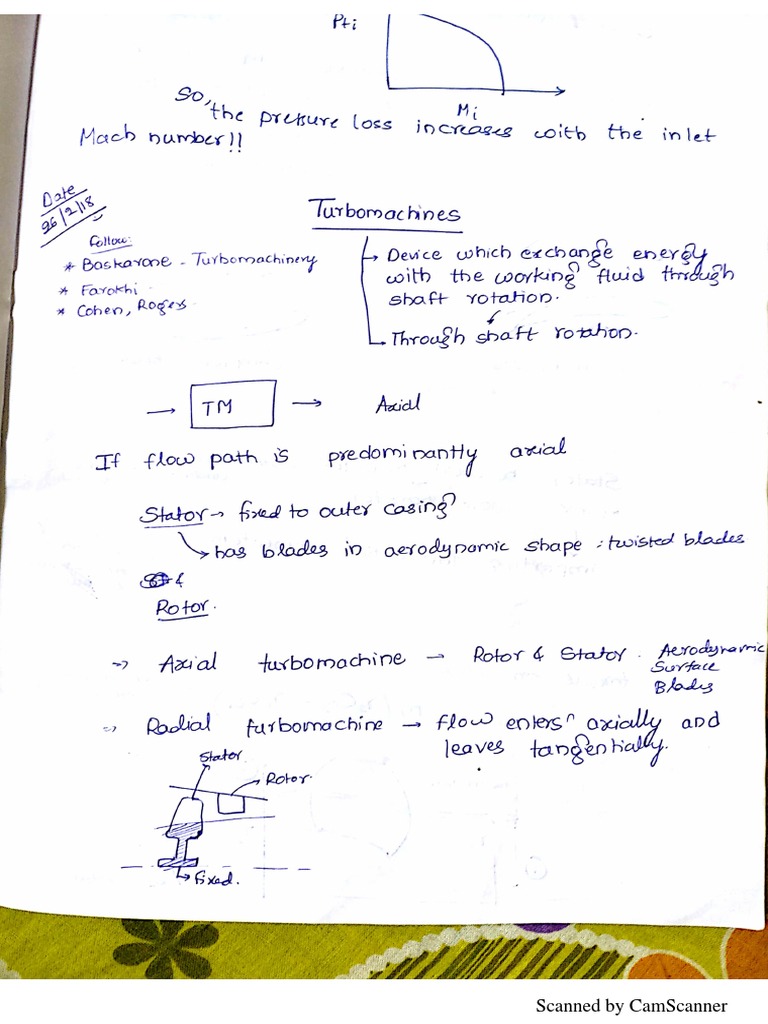 Pti
Mi
So, the pressure loss increases with the inlet
Mach number!!
Date
26/2/18
Turbomachines
Follow:
* Baskarone - Turbomachinery
* Farokhi
* Cohen, Rogers
→ Device which exchange energy
with the working fluid through
shaft rotation.
→ Through shaft rotation.
→ TM → Axial
If flow path is predominantly axial
Stator → fixed to outer casing
→ has blades in aerodynamic shape : twisted blades
&
Rotor.
⇒ Axial turbomachine → Rotor & Stator. Aerodynamic
Surface
Blades
⇒ Radial turbomachine → flow enters axially and
leaves tangentially.
Stator
Rotor.
fixed.
Scanned by CamScanner